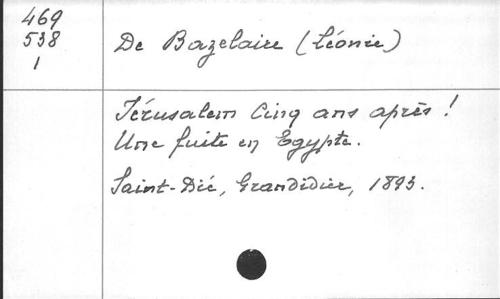 469
538
1
De Bazelaire (Léonie)
Jérusalem Cinq ans après !
Une fuite en Egypte.
Saint-Dié, Grandidier, 1893.